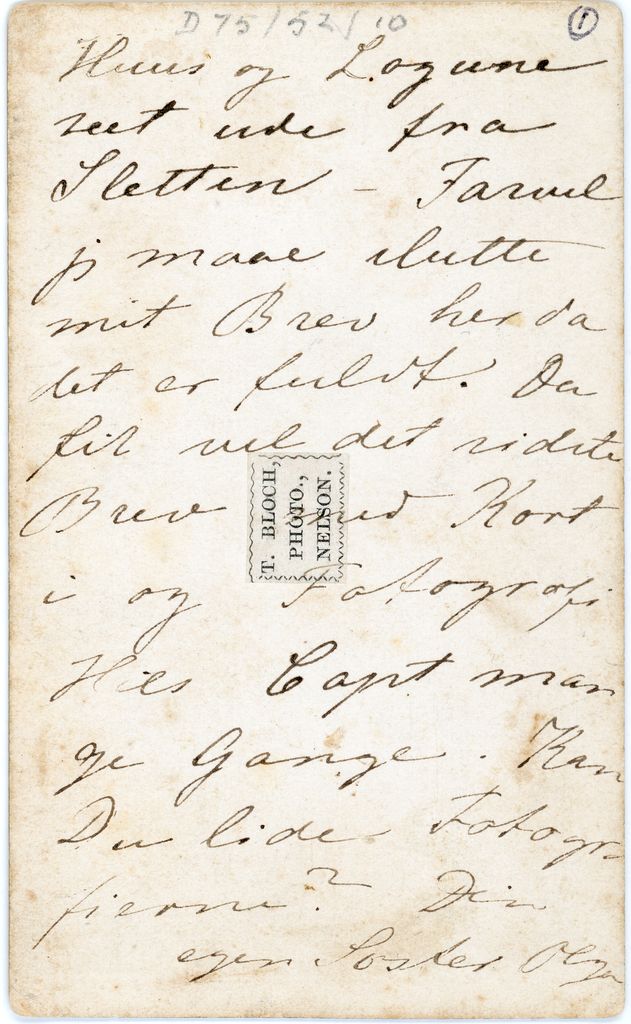 D75/52/10 ①
Huus og Logune
seet ude fra
Sletten - Farvel
jeg maae slutte
mit Brev her da
det er fuldt. Du
fik vel det sidste
Brev med Kort
i og Fotografi
Hils Capt man
ge Gange. Kan
Du lide Fotogra
fierne? Din
egen Søster Olga
T. BLOCH,
PHOTO.,
NELSON.